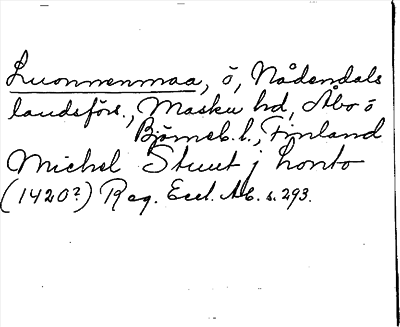 Luonnonmaa, ö, Nådendals
landsförs., Masku hd, Åbo ö
Björneb. l., Finland
Michel Stuut j honto
(1420?) Reg. Eccl. Ab. s. 293.